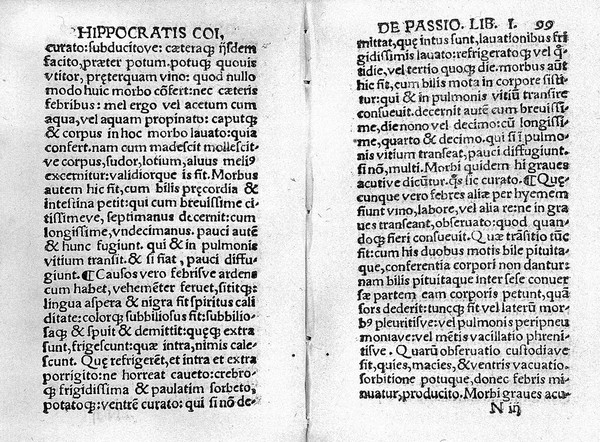 HIPPOCRATIS COI,
curato: subducitove: cæteraq́; ijsdem
facito, præter potum. potuq́; quouis
vtitor, præterquam vino: quod nullo
modo huic morbo cõfert: nec cæteris
febribus: mel ergo vel acetum cum
aqua, vel aquam propinato: caputq́;
& corpus in hoc morbo lauato: quia
confert. nam cum madescit mollescit-
ve corpus, sudor, lotium, aluus meliꝰ
excernitur: validiorque is fit. Morbus
autem hic fit, cum bilis pręcordia &
intestina petit: qui cum breuissime ci-
tissimeve, septimanus decernit: cum
longissime, vndecimanus. pauci autē
& hunc fugiunt. qui & in pulmonis
vitium transit. & si fiat, pauci diffu-
giunt. ¶ Causos vero febrisve ardens
cum habet, vehemēter feruet, sititq́;:
lingua aspera & nigra fit spiritus cali
ditate: colorq́; subbiliosus fit: subbilio-
saq́; & spuit & demittit: quęq́; extra
sunt, frigescunt: quæ intra, nimis cale-
scunt. Quę refrigerēt, et intra et extra
porrigito: ne horreat caueto: crebro-
q́; frigidissima & paulatim sorbeto,
potatoq́;: ventrē curato: qui si nō de-
DE PASSIO. LIB. I. 99
mittat, quę intus sunt, lauationibus fri
gidissimis lauato: refrigeratoq́; vel q̃-
tidie, vel tertio quoq́; die. morbus aut
hic fit, cum bilis mota in corpore sisti
tur: qui & in pulmonis vitiũ transire
consueuit. decernit autē cum breuissi-
me, die nono vel decimo: cũ longissi-
me, quarto & decimo. qui si ĩ pulmo-
nis vitium transeat, pauci diffugiunt.
si nõ, multi. Morbi quidem hi graues
acutive dicũtur. q̃s sic curato. ¶ Quę-
cunque vero febres aliæ per hyemem
fiunt vino, labore, vel alia re: ne in gra
ues transeant, obseruato: quod quan-
doq́; fieri consueuit. Quæ trāsitio tūc
fit: cum his duobus motis bile pituita-
que, conferentia corpori non dantur:
nam bilis pituitaque inter sese conuer
sæ partem eam corporis petunt, quã
sors dederit: tuncq́; fit vel laterũ mor-
bꝰ pleuritisve: vel pulmonis peripneu
moniave: vel mētis vacillatio phreni-
tisve. Quarũ obseruatio custodiave
fit, quies, macies, & ventris vacuatio.
sorbitione potuque, donec febris mi-
nuatur, producito. Morbi graues acu-
N iij